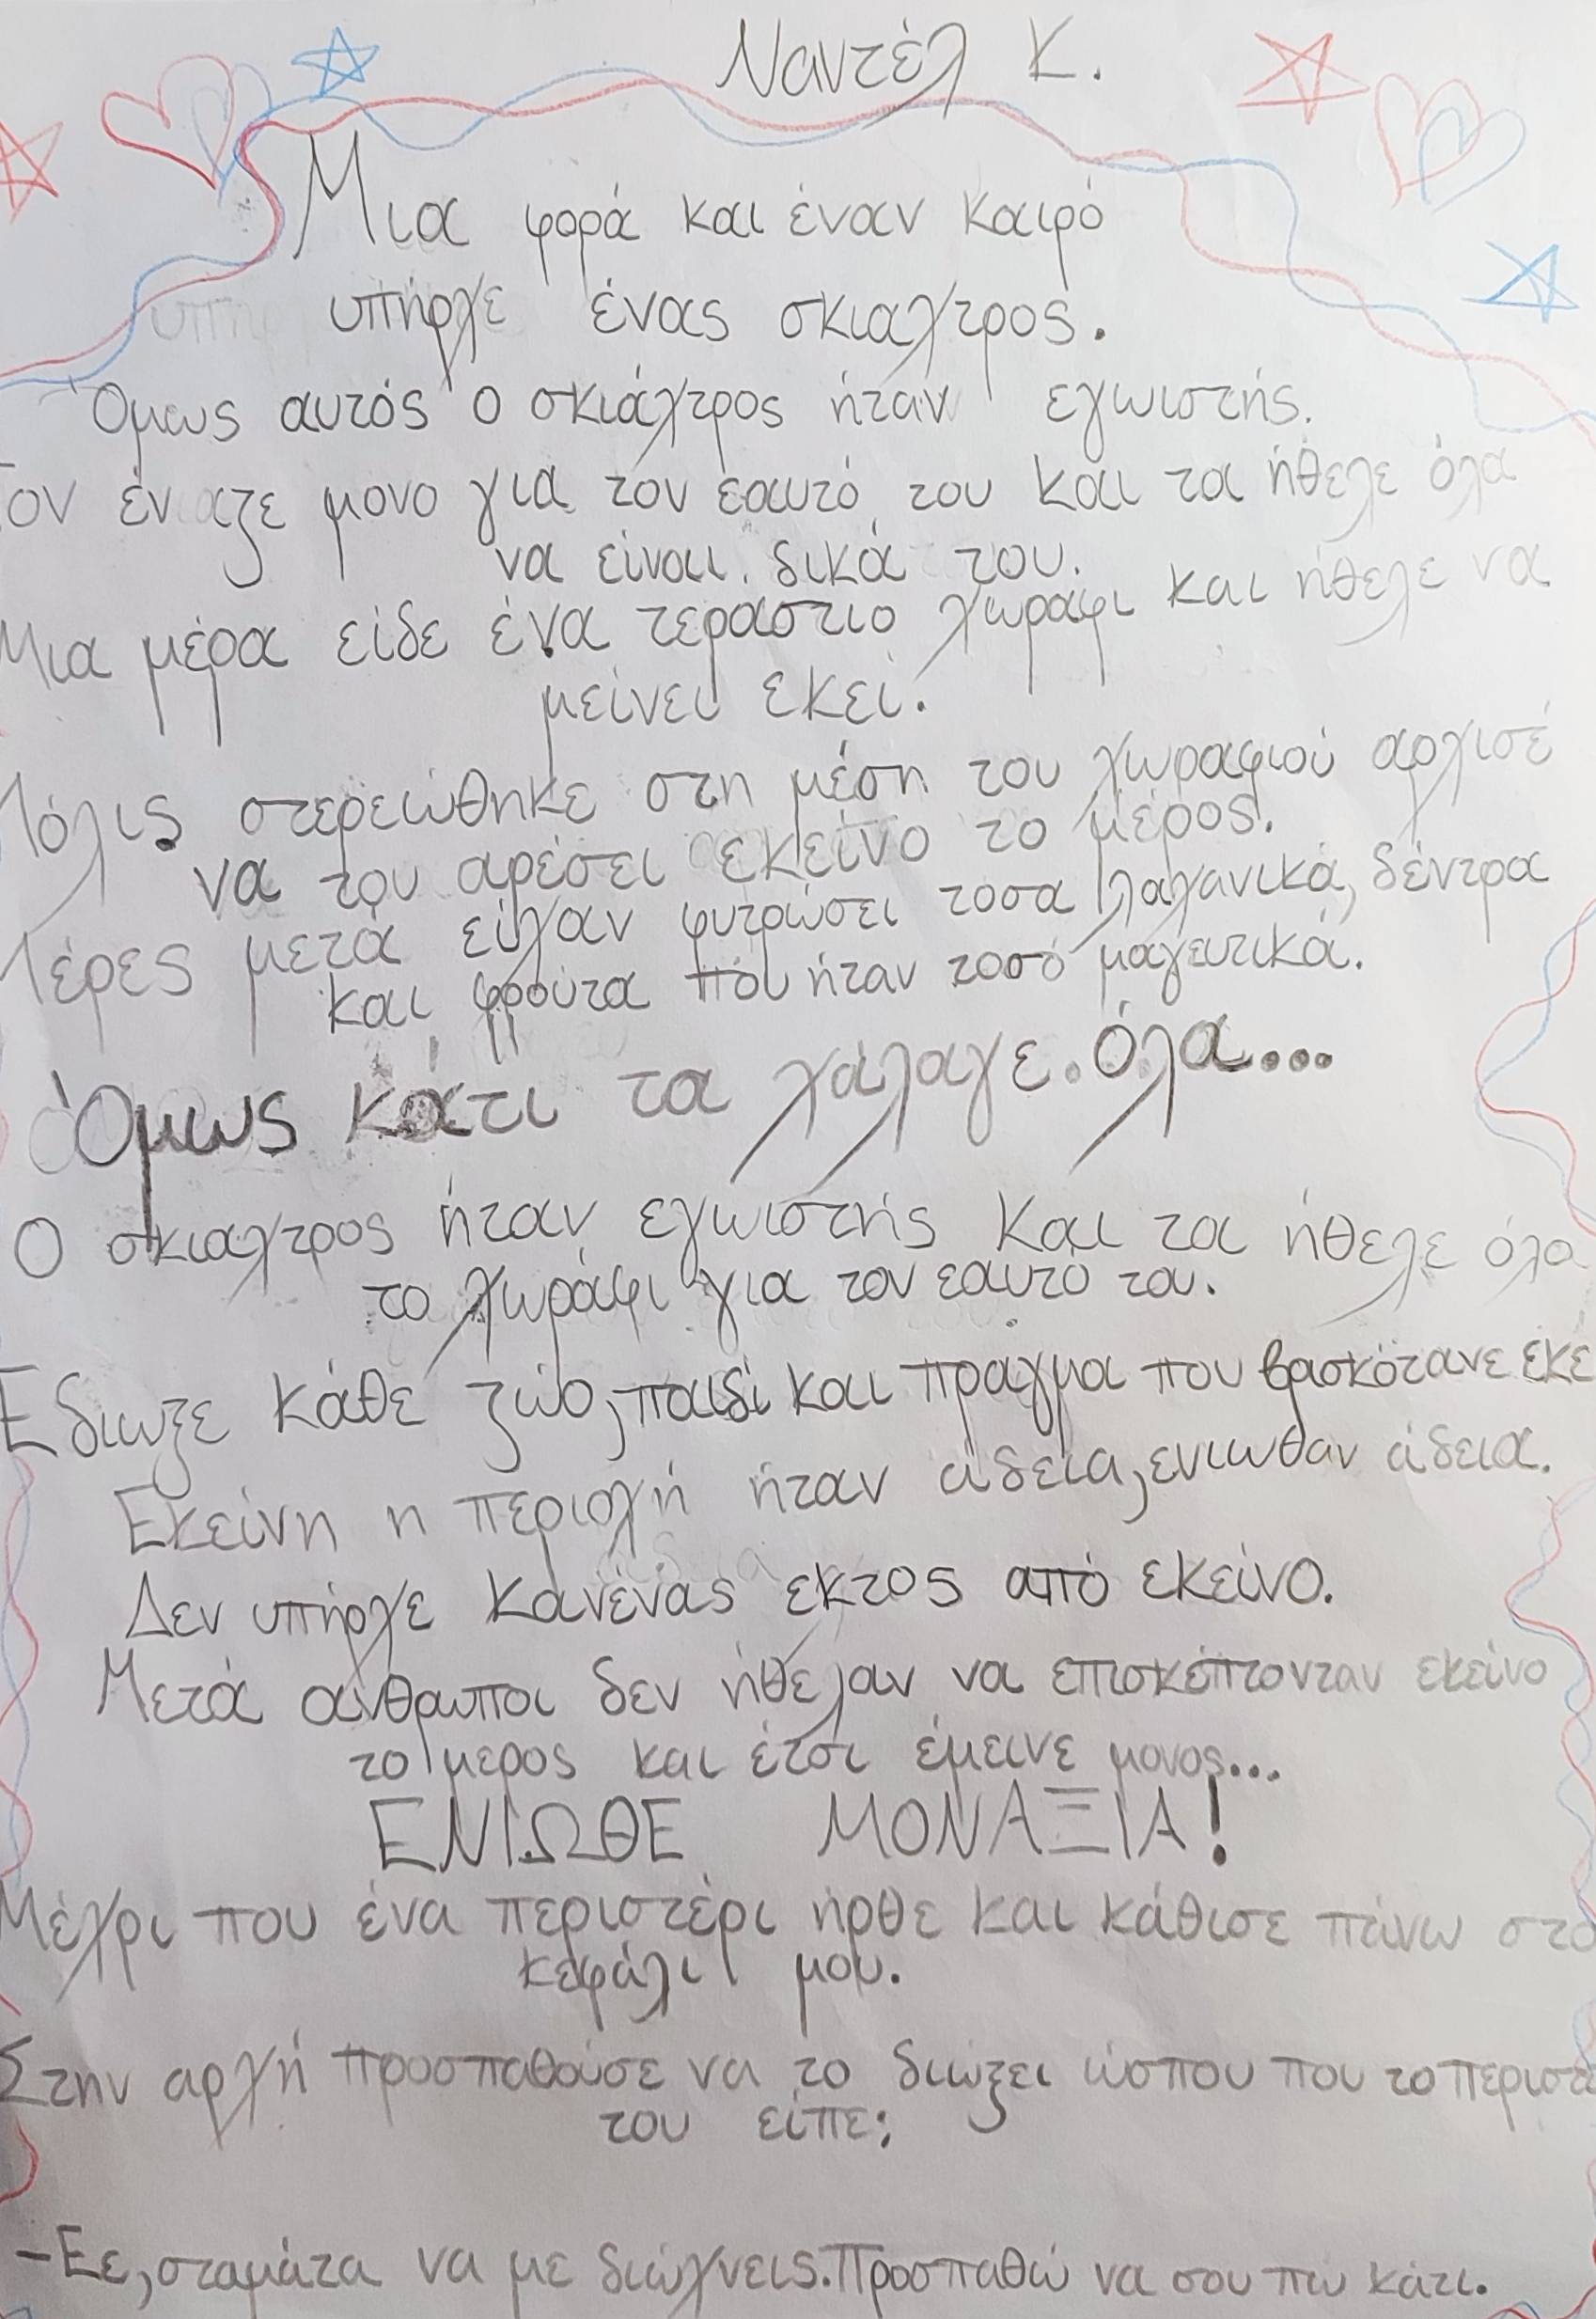 Ναντέλ Κ.
Μια φορά και έναν καιρό
υπήρχε ένας σκιαχτρος.
Όμως αυτός ο σκιάχτρος ήταν εγωιστής.
Τον ένιαζε μονο για τον εαυτό του και τα ήθελε όλα
να είναι δικά του.
Μια μέρα είδε ένα τεράστιο χωράφι και ήθελε να
μείνει εκεί.
Μόλις στερειώθηκε στη μέση του χωραφιού αρχισέ
να του αρέσει εκείνο το μέρος.
Μέρες μετά είχαν φυτρώσει τοσα λαχανικά, δέντρα
και φρούτα που ήταν τοσο μαγευτικά.
Όμως κάτι τα χάλαγε όλα...
Ο σκιαχτρος ήταν εγωιστής και τα ήθελε όλο
το χωράφι για τον εαυτό του.
Εδιωξε κάθε ζώο, παιδί και πραγμα που βρασκότανε εκε
Εκείνη η περιοχή ήταν άδεια, ενιωθαν άδεια.
Δεν υπήρχε κανένας εκτος από εκείνο.
Μετά ανθρωποι δεν ήθελαν να επισκέπτονταν εκείνο
το μερος και έτσι έμεινε μονος...
ΕΝΙΩΘΕ ΜΟΝΑΞΙΑ!
Μέχρι που ένα περιστέρι ήρθε και κάθισε πάνω στο
κεφάλι μου.
Στην αρχή προσπαθούσε να το διώξει ώσπου που το περιστε
του είπε:
-Εε, σταμάτα να με διώχνεις. Προσπαθώ να σου πω κάτι.